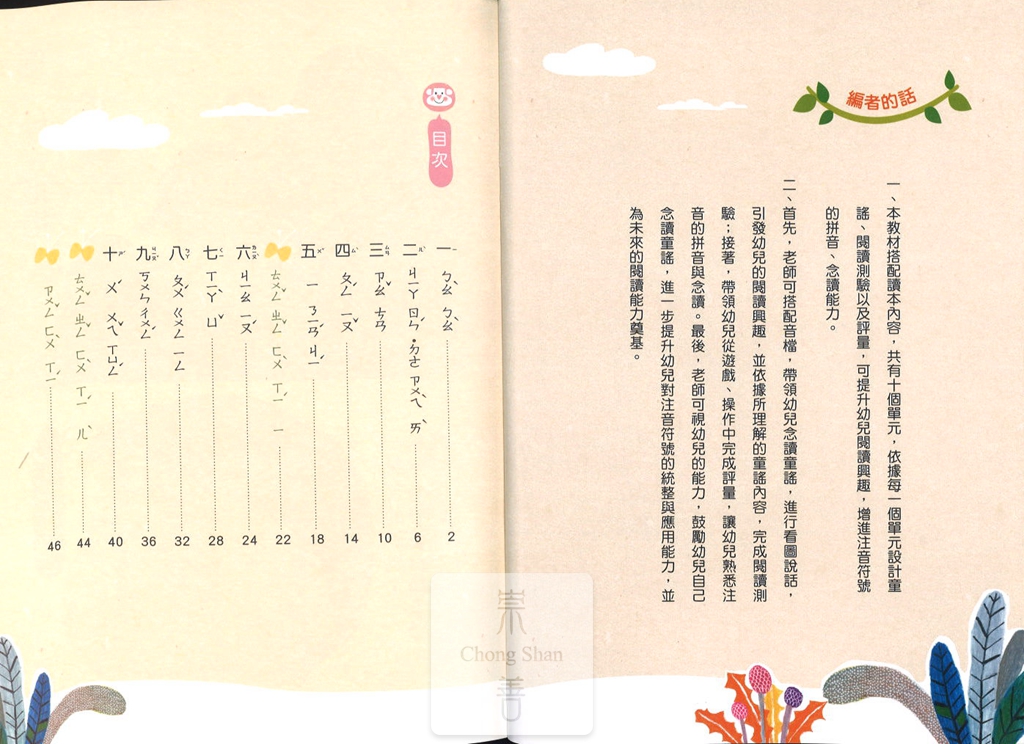 編者的話
一、本教材搭配讀本內容，共有十個單元，依據每一個單元設計童
謠、閱讀測驗以及評量，可提升幼兒閱讀興趣，增進注音符號
的拼音、念讀能力。
二、首先，老師可搭配音檔，帶領幼兒念讀童謠，進行看圖說話，
引發幼兒的閱讀興趣，並依據所理解的童謠內容，完成閱讀測
驗；接著，帶領幼兒從遊戲、操作中完成評量，讓幼兒熟悉注
音的拼音與念讀。最後，老師可視幼兒的能力，鼓勵幼兒自己
念讀童謠，進一步提升幼兒對注音符號的統整與應用能力，並
為未來的閱讀能力奠基。
目次
一 ㄅㄠˇ ㄅㄠ 2
二 ㄐㄧㄚ ㄖㄣˋ ˙ㄉㄜ ㄗㄨㄟˋ ㄞˋ 6
三 ㄗㄠˇ ㄊㄢ 10
四 ㄆㄥˊ ㄧㄡˇ 14
五 ㄧ ㄋㄢˊ ㄐㄧˊ 18
ㄊㄨㄥˊ ㄓㄥ ㄈㄨˋ ㄒㄧˊ ㄧ 22
六 ㄐㄧㄠ ㄧㄡˊ 24
七 ㄒㄧㄚˋ ㄩˇ 28
八 ㄆㄨˊ ㄍㄨㄥ ㄧㄥ 32
九 ㄎㄨㄣ ㄔㄨㄥˊ 36
十 ㄨˊ ㄨㄟˇ ㄒㄩㄥˊ 40
ㄊㄨㄥˇ ㄓㄥˇ ㄈㄨˋ ㄒㄧˊ ㄦˋ 44
ㄗㄨㄥˇ ㄈㄨˋ ㄒㄧˊ 46
崇
Chong Shan
善